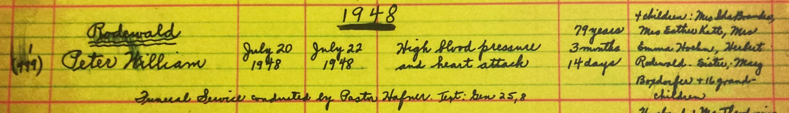 1948
4 children: Mrs Ida Brandes,
Rodewald
79 years
Mrs Esther Kett, Mrs
1
(999) Peter William July 20 July 22 High blood pressure 3 months Emma Hoehn, Herbert
1948 1948 and heart attack 14 days Rodewald. Sister, Mary
Boxdorfer + 16 grand-
Funeral Service conducted by Pastor Hafner. Text: Gen 25,8
children